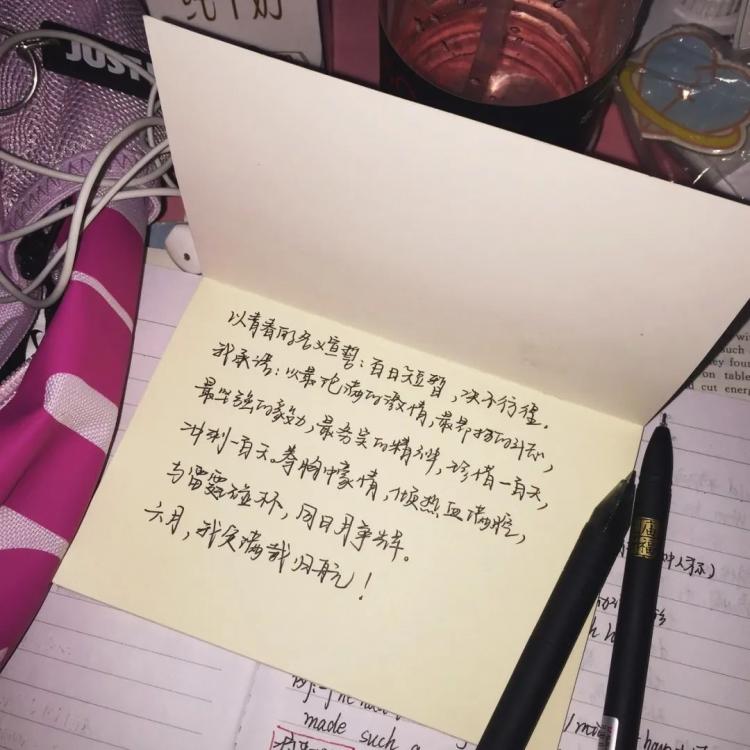 纯牛奶
JUST
以青春的名义宣誓:百日短暂,决不彷徨。
我承诺:以最饱满的激情,最昂扬的斗志,
最坚强的毅力,最务实的精神,珍惜一百天,
冲刺一百天。眷胸中豪情,倾热血满腔,
与雷霆碰杯,同日月争辉。
六月,我定满载归航!
such
they found
on table
cut energ
made such a